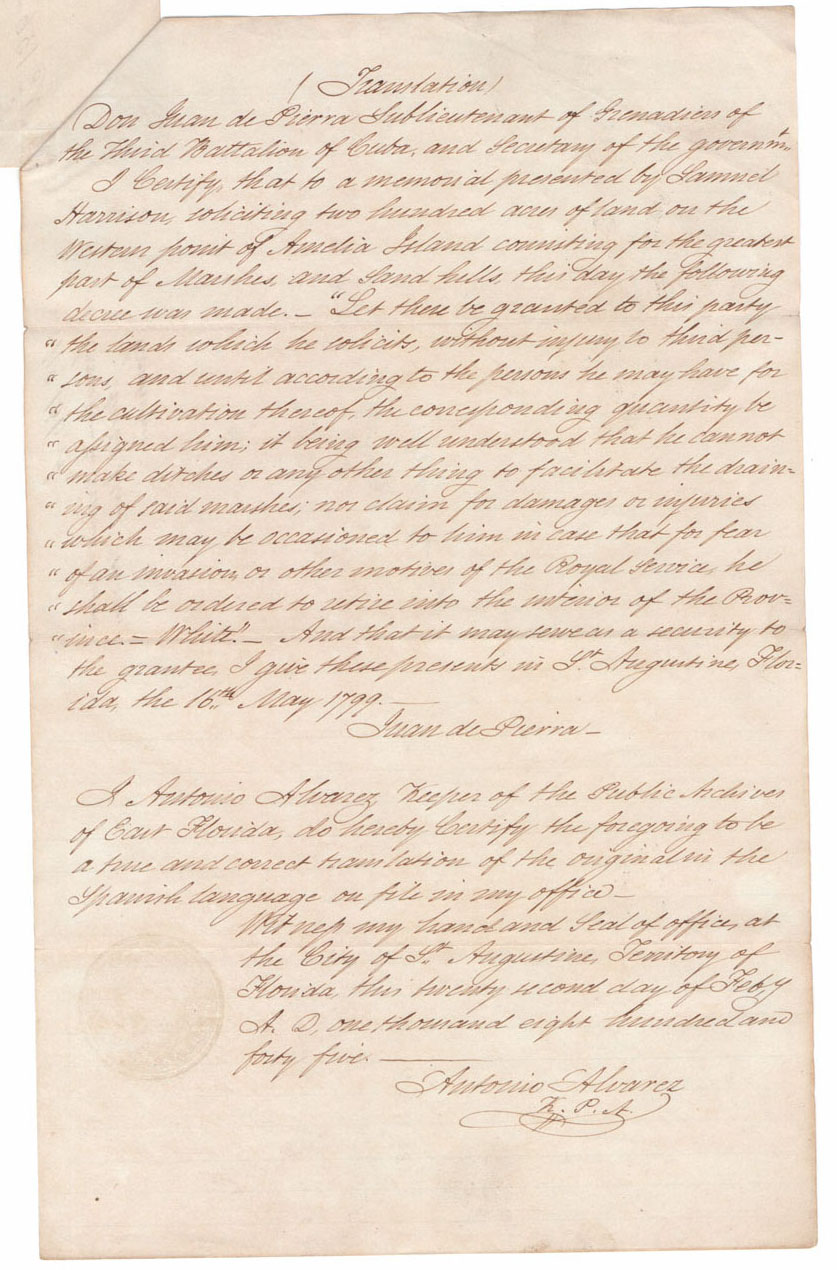 ( Translation )
Don Juan de Pierra Sublieutenant of Grenadiers of
the Third Battalion of Cuba, and Secretary of the governmt.
I Certify, that to a memorial presented by Samuel
Harrison, soliciting two hundred acres of land on the
Western point of Amelia Island consisting for the greatest
part of Marshes, and Sand hills, this day the following
decree was made. — "Let there be granted to this party
" the lands which he solicits, without injury to third per-
" sons, and until according to the persons he may have for
" the cultivation thereof, the corresponding quantity be
" assigned him; it being well understood that he cannot
" make ditches or any other thing to facilitate the drain=
" ing of said marshes; nor claim for damages or injuries
" which may be occasioned to him in case that for fear
" of an invasion, or other motives of the Royal Service, he
" shall be ordered to retire into the interior of the Prov=
" ince. = White". — And that it may serve as a security to
the grantee, I give these presents in St. Augustine, Flor=
ida, the 16th. May 1799. —
Juan de Pierra —
I Antonio Alvarez, Keeper of the Public Archives
of East Florida, do hereby Certify the foregoing to be
a true and correct translation of the original in the
Spanish language on file in my office —
Witness my hand and Seal of office, at
the City of St. Augustine, Territory of
Florida, this twenty second day of Feby
A. D, one thousand eight hundred and
forty five. —
Antonio Alvarez
K. P. A.